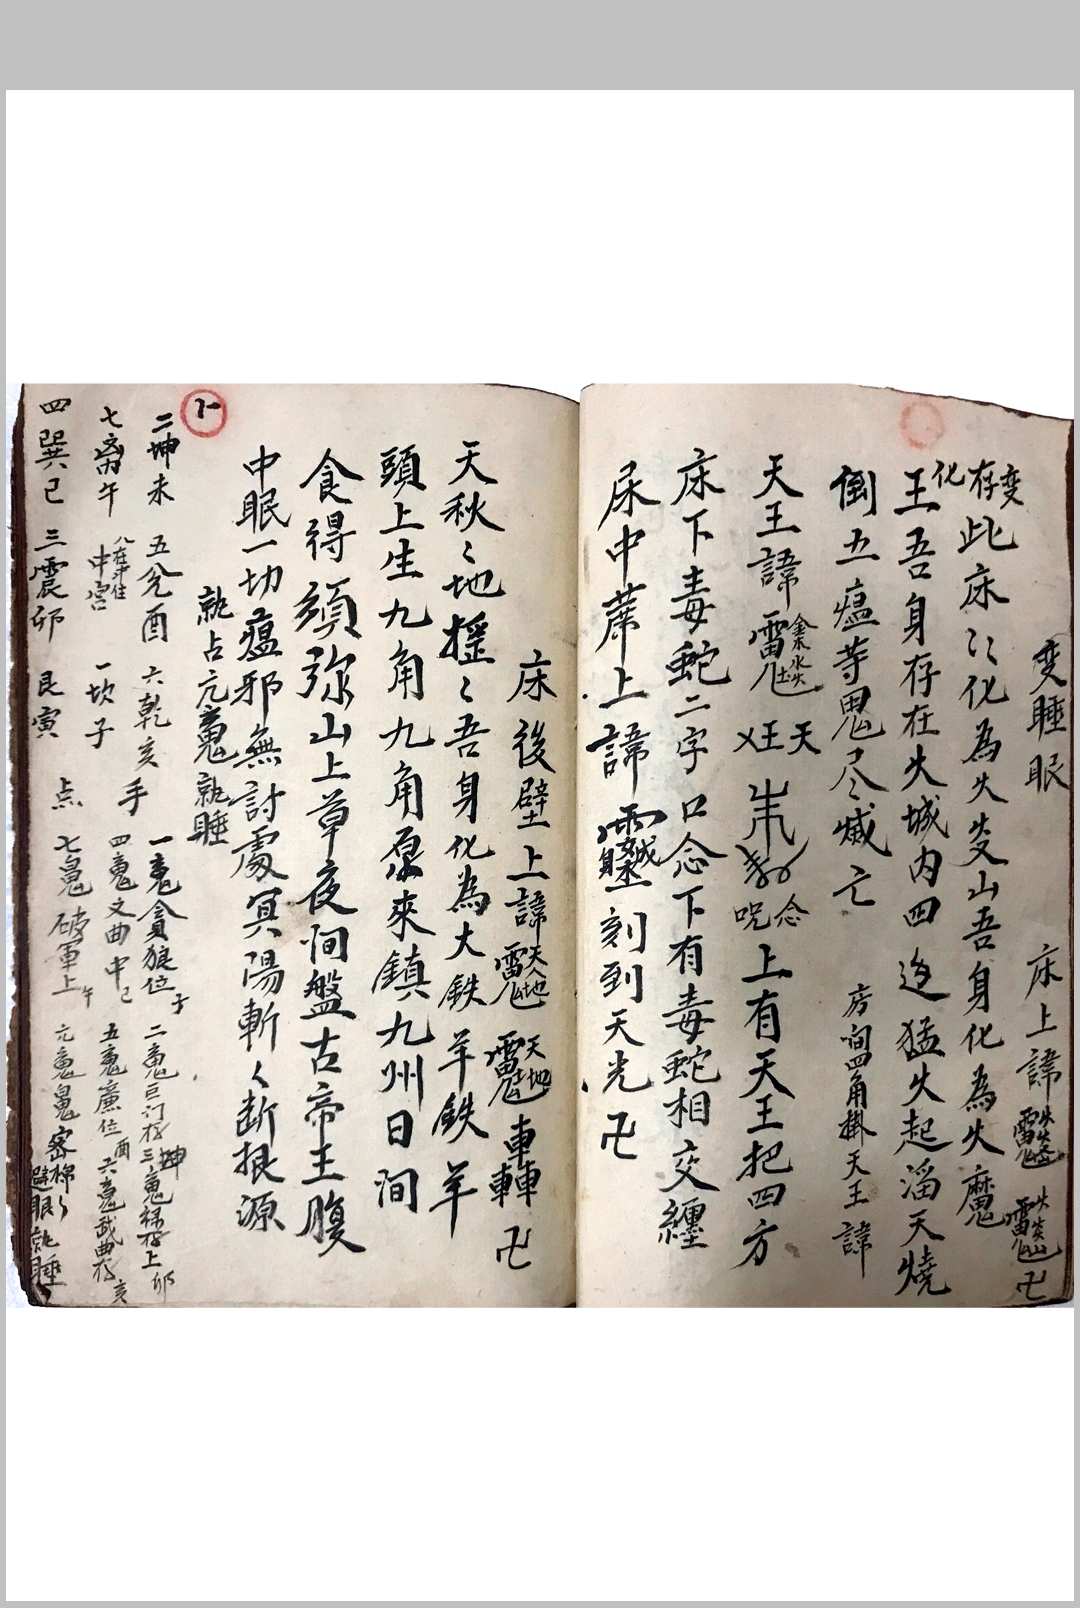 变睡眠 床上諱 卍
变存化此床氵化為火炎山吾身化為火魔
王吾身存在火城内四边猛火起滔天燒
倒五瘟等鬼尽滅亡 房间四角掛天王諱
天王諱 金木水火土 天王 念咒上有天王把四方
床下毒蛇二字口念下有毒蛇相交纏
床中蓆上諱 刻到天光卍
床後壁上諱 卍
天秋〻地摇〻吾身化為大鉄羊鉄羊
頭上生九角九角原來鎮九州日间
食得須弥山上草夜间盤古帝王腹
中眠一切瘟邪無討處冥陽斬〻断根源
就占六鬼就睡
二坤未 五兑酉 六乾亥 手 一鬼貪狼位子 二鬼巨门 坤 三鬼禄存上卯
七离午 八在中住 中宮 一坎子 四鬼文曲中巳 五鬼廉位酉 六鬼武曲 亥
四巽巳 三震卯 艮寅 点 七鬼破軍上午 避眼就睡